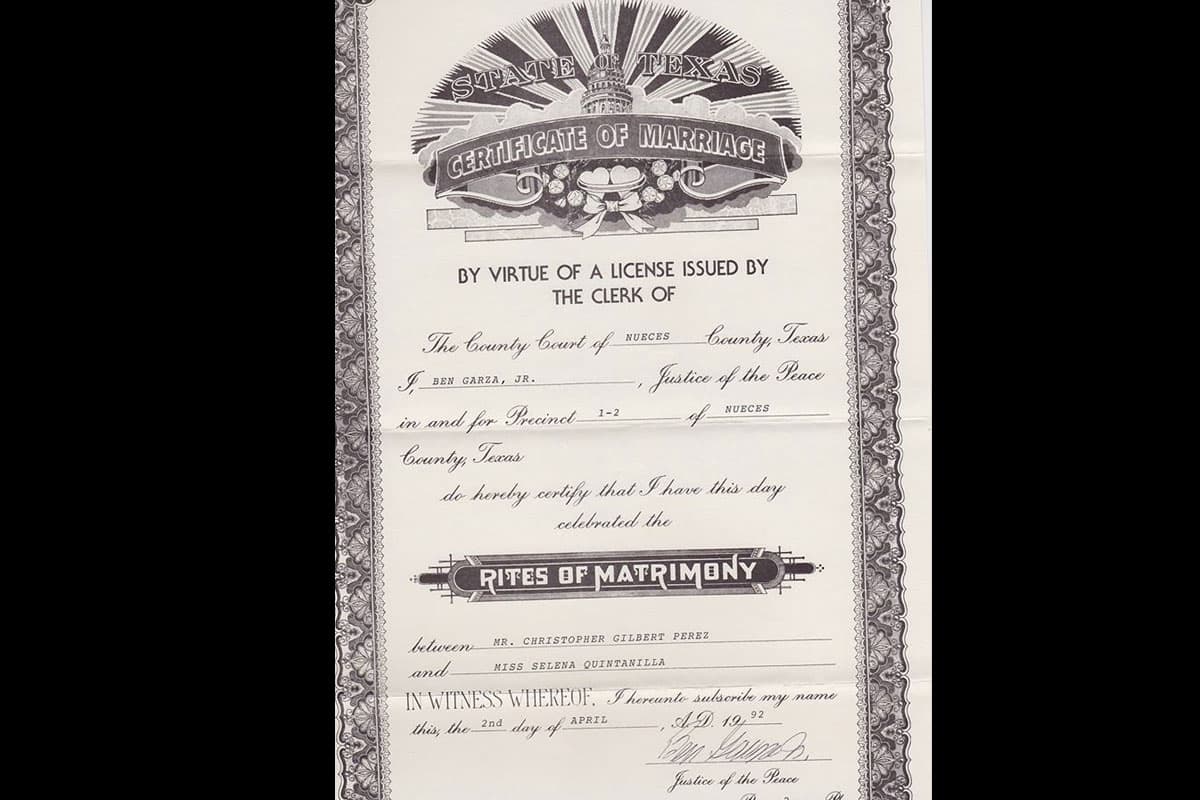 STATE OF TEXAS
CERTIFICATE OF MARRIAGE
BY VIRTUE OF A LICENSE ISSUED BY
THE CLERK OF
The County Court of NUECES County, Texas
I, BEN GARZA, JR. , Justice of the Peace
in and for Precinct 1-2 of NUECES
County, Texas
do hereby certify that I have this day
celebrated the
RITES OF MATRIMONY
between MR. CHRISTOPHER GILBERT PEREZ
and MISS SELENA QUINTANILLA
IN WITNESS WHEREOF, I hereunto subscribe my name
this, the 2nd day of APRIL , A.D. 19 92
Ben Garza Jr.
Justice of the Peace